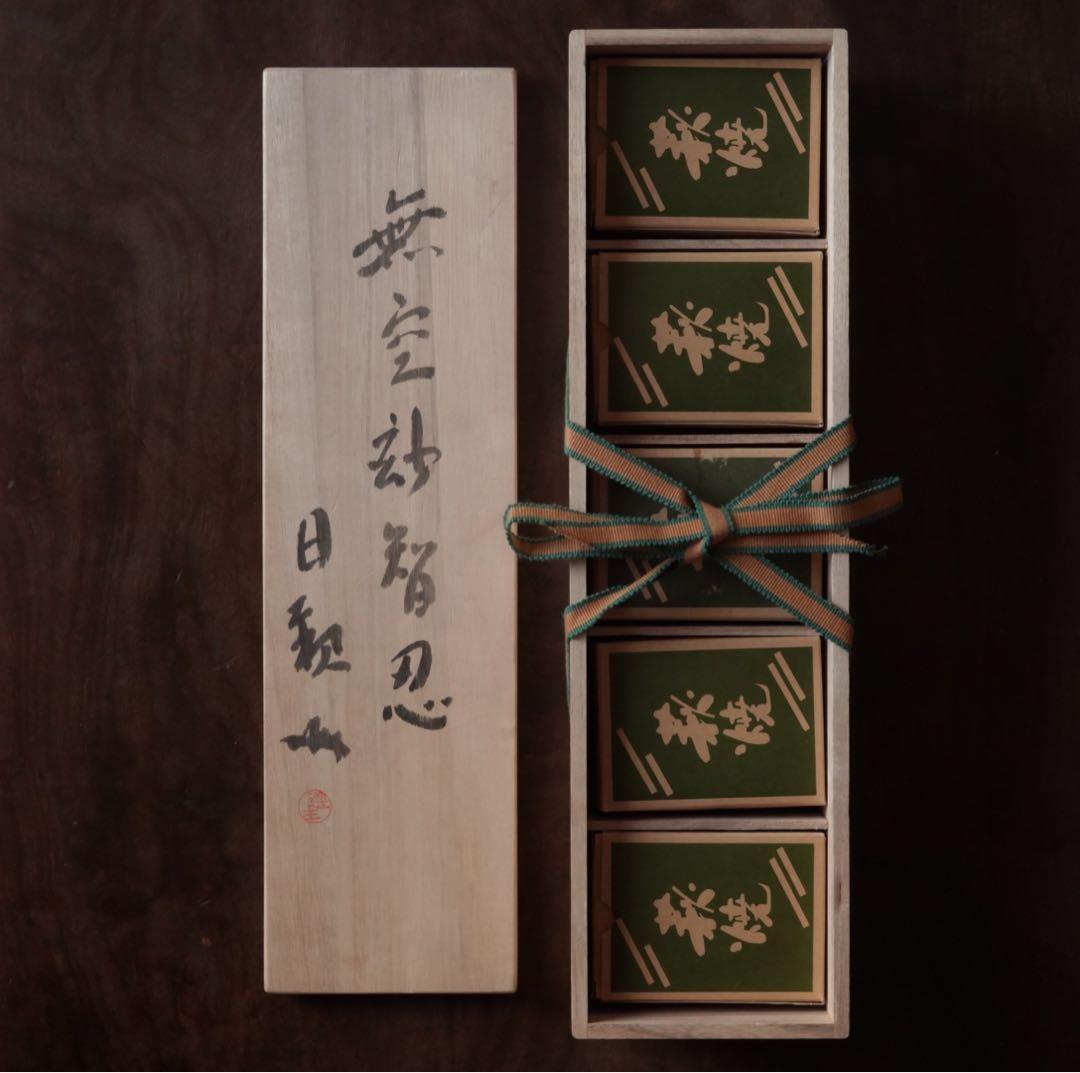 無空玅智忍
日
萩焼
萩焼
萩焼
萩焼